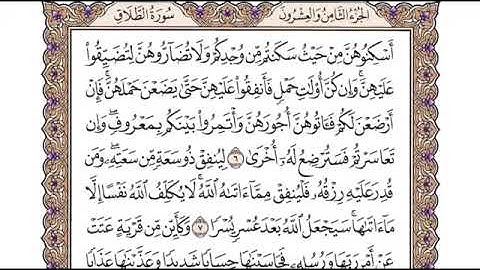 الجزء الثامن والعشرون سورة الطلاق
أَسْكِنُوهُنَّ مِنْ حَيْثُ سَكَنتُم مِّن وُجْدِكُمْ وَلَا تُضَآرُّوهُنَّ لِتُضَيِّقُوا۟
عَلَيْهِنَّ ۚ وَإِن كُنَّ أُو۟لَـٰتِ حَمْلٍ فَأَنفِقُوا۟ عَلَيْهِنَّ حَتَّىٰ يَضَعْنَ حَمْلَهُنَّ ۚ فَإِنْ
أَرْضَعْنَ لَكُمْ فَـَٔاتُوهُنَّ أُجُورَهُنَّ ۖ وَأْتَمِرُوا۟ بَيْنَكُم بِمَعْرُوفٍ ۖ وَإِن
تَعَاسَرْتُمْ فَسَتُرْضِعُ لَهُۥٓ أُخْرَىٰ ٦ لِيُنفِقْ ذُو سَعَةٍ مِّن سَعَتِهِۦ ۖ وَمَن
قُدِرَ عَلَيْهِ رِزْقُهُۥ فَلْيُنفِقْ مِمَّآ ءَاتَىٰهُ ٱللَّهُ ۚ لَا يُكَلِّفُ ٱللَّهُ نَفْسًا إِلَّا
مَآ ءَاتَىٰهَا ۚ سَيَجْعَلُ ٱللَّهُ بَعْدَ عُسْرٍ يُسْرًا ٧ وَكَأَيِّن مِّن قَرْيَةٍ عَتَتْ
عَنْ أَمْرِ رَبِّهَا وَرُسُلِهِۦ فَحَاسَبْنَـٰهَا حِسَابًا شَدِيدًا وَعَذَّبْنَـٰهَا عَذَابًا